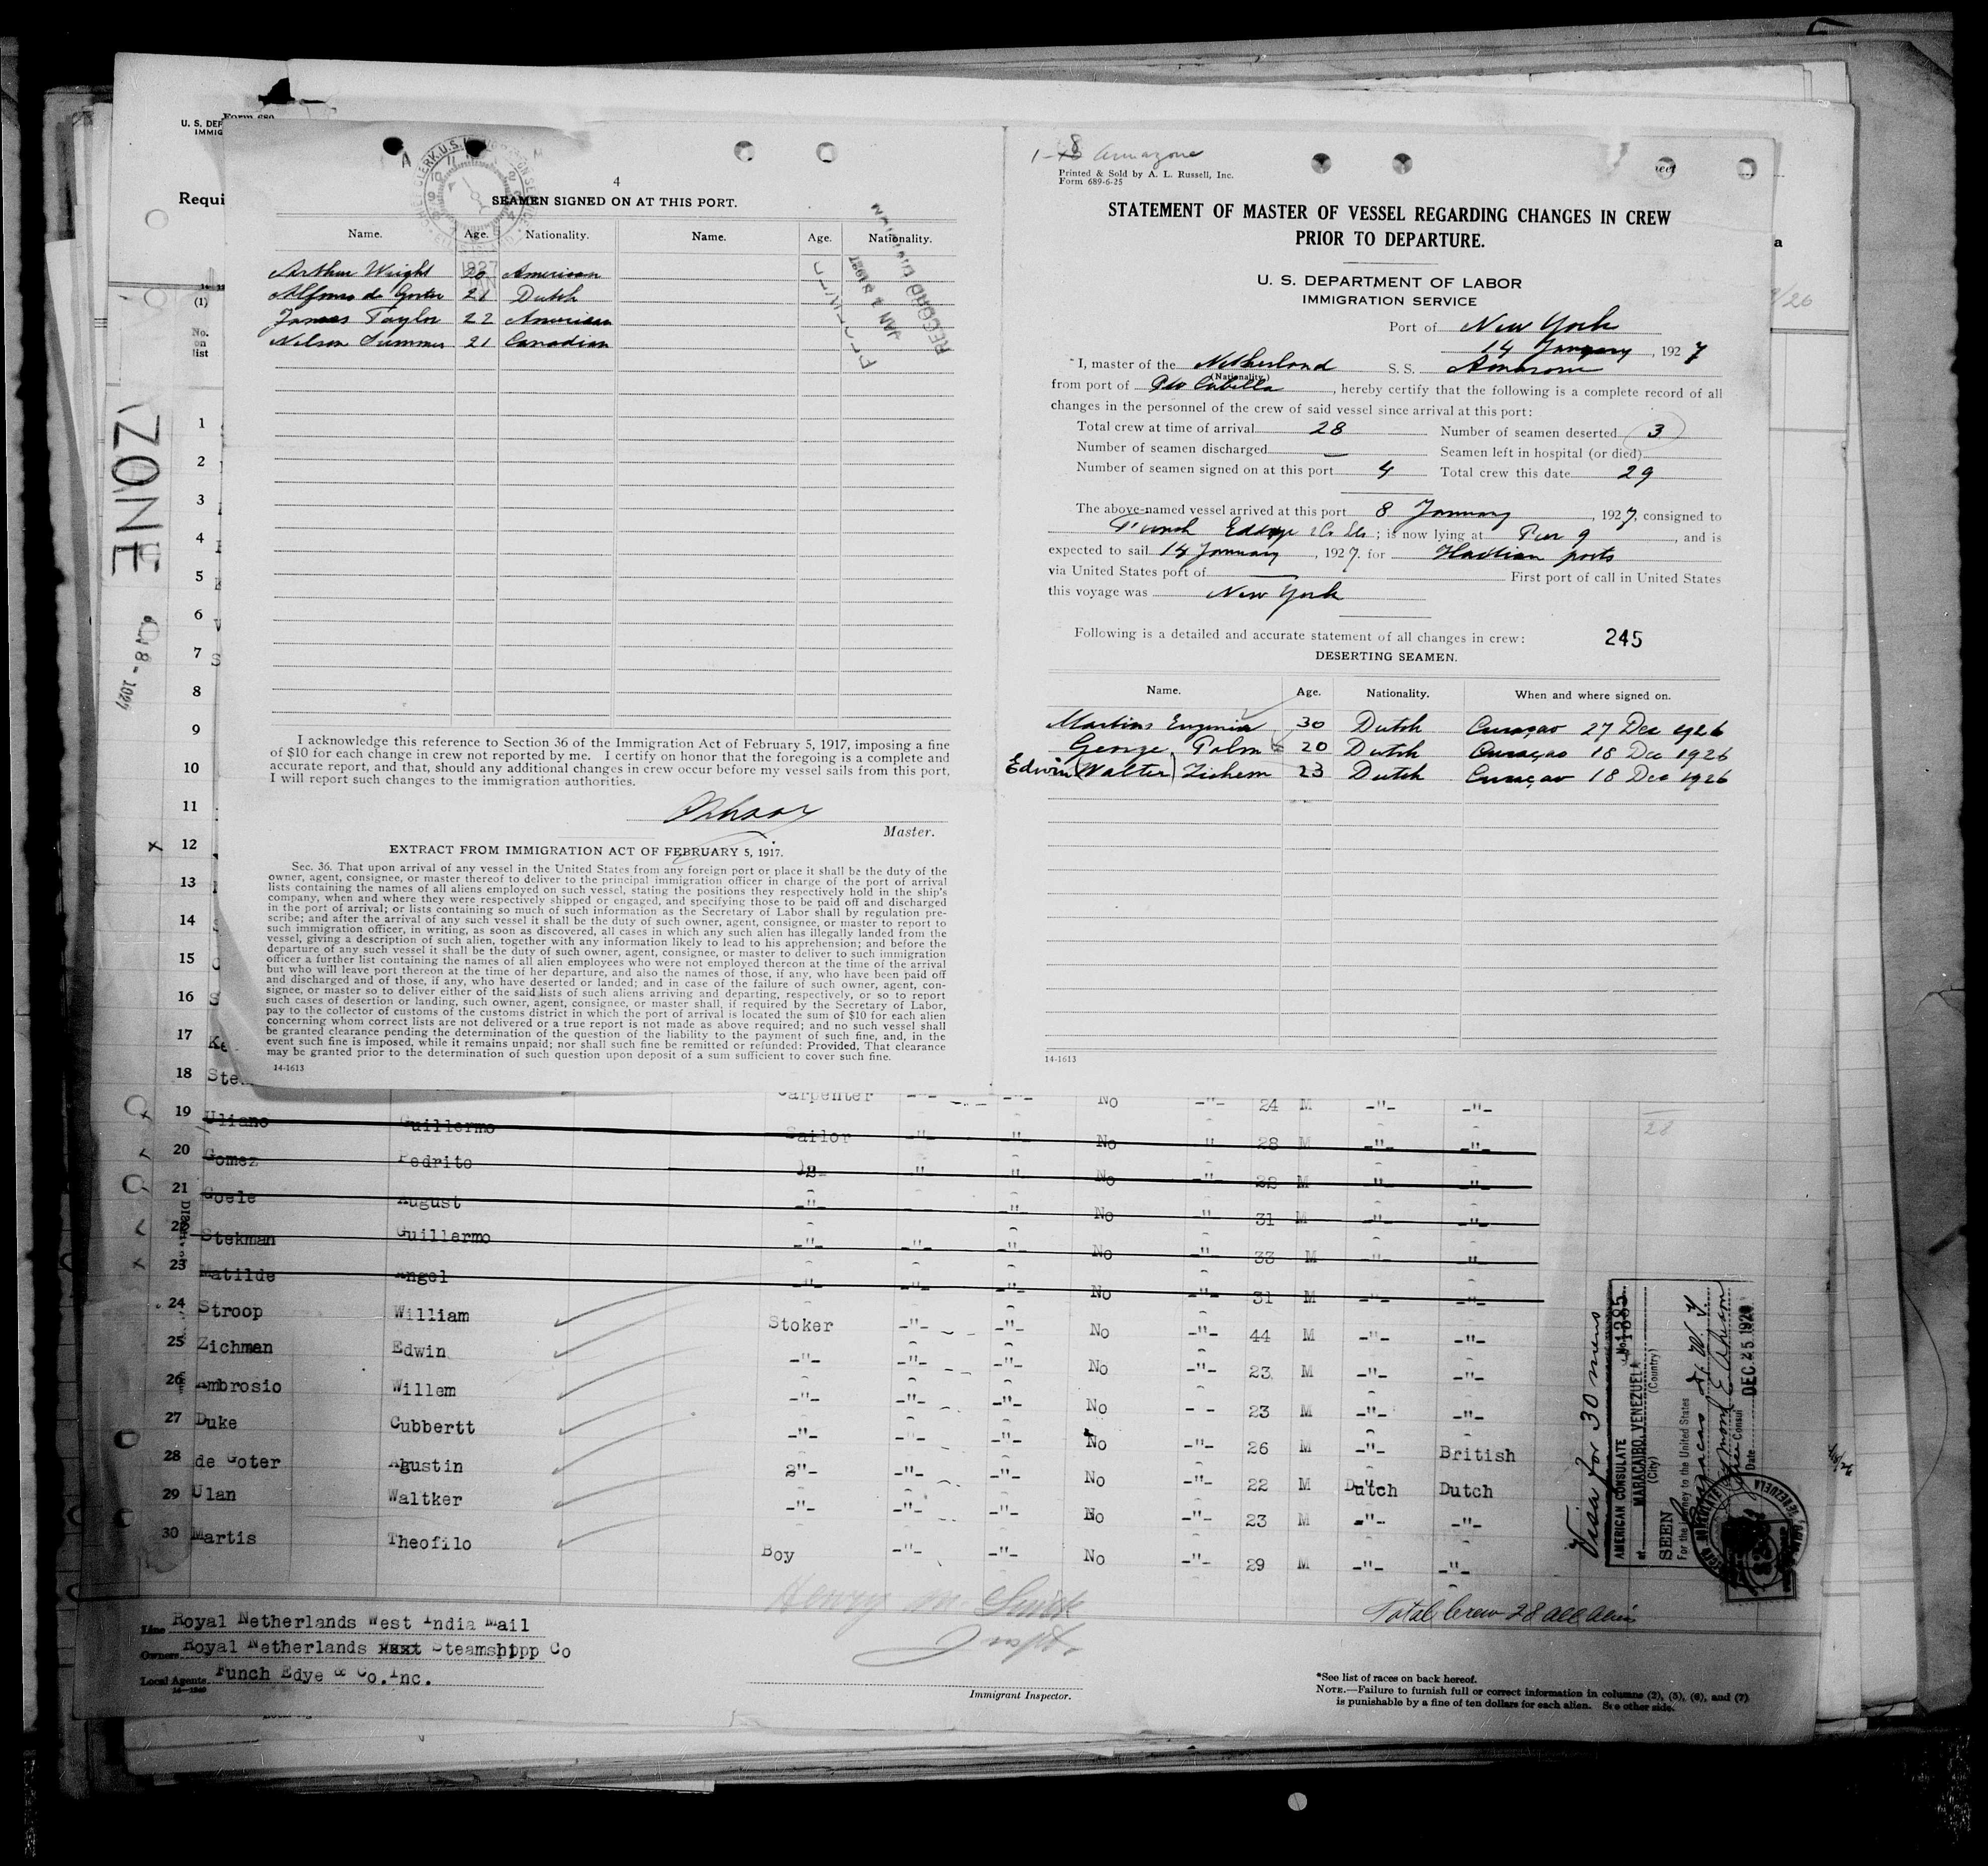 Form 689
U. S. DEP
IMMIG
Requi
(1)
No.
on
list
ZONE
4
SEAMEN SIGNED ON AT THIS PORT.
Name. Age. Nationality. Name. Age. Nationality.
Arthur Wright 20 American
Alfonso de Goter 21 Dutch
James Taylor 22 American
Nelson Summer 21 Canadian
JAN 1 1927
RECORD DIVISION
I acknowledge this reference to Section 36 of the Immigration Act of February 5, 1917, imposing a fine
of $10 for each change in crew not reported by me. I certify on honor that the foregoing is a complete and
accurate report, and that, should any additional changes in crew occur before my vessel sails from this port,
I will report such changes to the immigration authorities.
Master.
EXTRACT FROM IMMIGRATION ACT OF FEBRUARY 5, 1917.
Sec. 36. That upon arrival of any vessel in the United States from any foreign port or place it shall be the duty of the
owner, agent, consignee, or master thereof to deliver to the principal immigration officer in charge of the port of arrival
lists containing the names of all aliens employed on such vessel, stating the positions they respectively hold in the ship's
company, when and where they were respectively shipped or engaged, and specifying those to be paid off and discharged
in the port of arrival; or lists containing so much of such information as the Secretary of Labor shall by regulation pre-
scribe; and after the arrival of any such vessel it shall be the duty of such owner, agent, consignee, or master to report to
such immigration officer, in writing, as soon as discovered, all cases in which any such alien has illegally landed from the
vessel, giving a description of such alien, together with any information likely to lead to his apprehension; and before the
departure of any such vessel it shall be the duty of such owner, agent, consignee, or master to deliver to such immigration
officer a further list containing the names of all alien employees who were not employed thereon at the time of the arrival
but who will leave port thereon at the time of her departure, and also the names of those, if any, who have been paid off
and discharged and of those, if any, who have deserted or landed; and in case of the failure of such owner, agent, con-
signee, or master so to deliver either of the said lists of such aliens arriving and departing, respectively, or so to report
such cases of desertion or landing, such owner, agent, consignee, or master shall, if required by the Secretary of Labor,
pay to the collector of customs of the customs district in which the port of arrival is located the sum of $10 for each alien
concerning whom correct lists are not delivered or a true report is not made as above required; and no such vessel shall
be granted clearance pending the determination of the question of the liability to the payment of such fine, and, in the
event such fine is imposed, while it remains unpaid; nor shall such fine be remitted or refunded: Provided, That clearance
may be granted prior to the determination of such question upon deposit of a sum sufficient to cover such fine.
14-1613
1-8 Amazone
Printed & Sold by A. L. Russell, Inc.
Form 689-6-25
STATEMENT OF MASTER OF VESSEL REGARDING CHANGES IN CREW
PRIOR TO DEPARTURE.
U. S. DEPARTMENT OF LABOR
IMMIGRATION SERVICE
Port of New York
14 January, 1927
I, master of the Netherland S. S. Amazone
(Nationality)
from port of Pto Cabello, hereby certify that the following is a complete record of all
changes in the personnel of the crew of said vessel since arrival at this port:
Total crew at time of arrival 28 Number of seamen deserted 3
Number of seamen discharged — Seamen left in hospital (or died)
Number of seamen signed on at this port 4 Total crew this date 29
The above-named vessel arrived at this port 8 January, 1927, consigned to
Funch Edye & Co Inc; is now lying at Pier 9, and is
expected to sail 14 January, 1927. for Haitian ports
via United States port of — First port of call in United States
this voyage was New York
Following is a detailed and accurate statement of all changes in crew: 245
DESERTING SEAMEN.
Name. Age. Nationality. When and where signed on.
Martins Eugenia 30 Dutch Curaçao 27 Dec 1926
George Palm 20 Dutch Curaçao 18 Dec 1926
Edwin (Walter) Zichem 23 Dutch Curaçao 18 Dec 1926
14-1613
1
2
3
4
5
6
7
8
9
10
11
12
13
14
15
16
17
18 Ste
Carpenter -"- -"- No -"- 24 M -"- -"-
19 Uliano Guillermo Sailor -"- -"- No " 28 M -"- -"-
20 Gomez Pedrito -"- -"- " No -"- 22 M -"- -"-
21 Goele August -"- -"- No -" 31 M -"- -"-
22 Stekman Guillermo -"- -"- -"- No -"- 33 M -"- "-
23 Matilde Angel -"- -"- -"- No -"- 31 M -"- -"-
24 Stroop William Stoker -"- -"- No -"- 44 M -"- -"-
25 Zichman Edwin -"- -"- -"- No -"- 23 M -"- -"-
26 Ambrosio Willem -"- -"- -"- No - - 23 M -"- -"-
27 Duke Cubbertt -"- -"- -"- No -"- 26 M -"- British
28 de Goter Agustin -"- -"- -"- No -"- 22 M Dutch Dutch
29 Ulan Waltker -"- -"- -"- No -"- 23 M -"- -"-
30 Martis Theofilo Boy -"- -"- No -"- 29 M -"- -"-
Visa for 30 mens
AMERICAN CONSULATE No. 1385
at MARACAIBO, VENEZUELA
(City) (Country)
SEEN
For the journey to the United States
Vice Consul
Date DEC 15 192
Total Crew 28 all alien
Line Royal Netherlands West India Mail
Owners Royal Netherlands Steamshipp Co
Local Agents Funch Edye & Co. Inc.
Immigrant Inspector.
*See list of races on back hereof.
NOTE.—Failure to furnish full or correct information in columns (2), (5), (6), and (7)
is punishable by a fine of ten dollars for each alien. See other side.